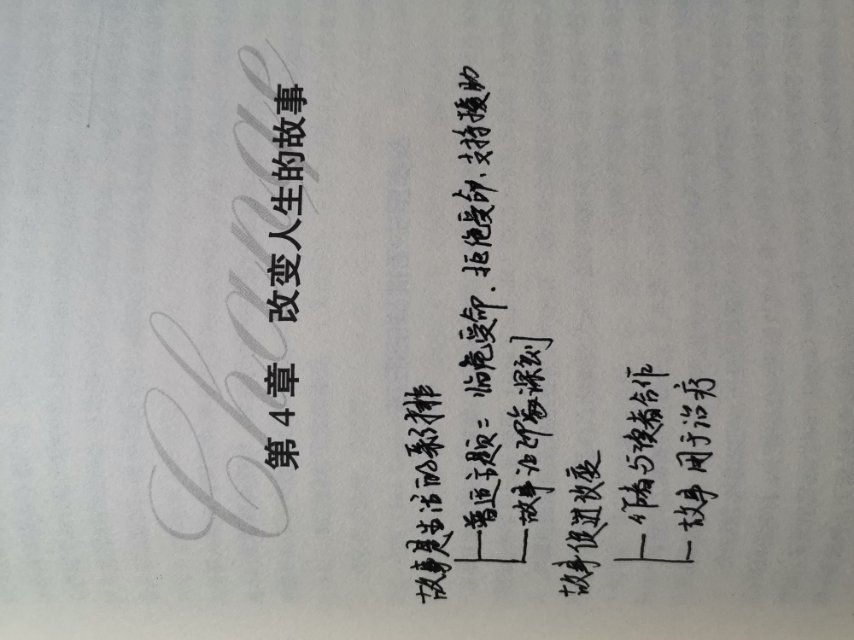 Change
第4章 改变人生的故事
故事是生活的彩排
普适主题：临危受命、拒绝受命、支持援助
故事让印象深刻
故事促进改变
作者与读者合作
故事用于治疗